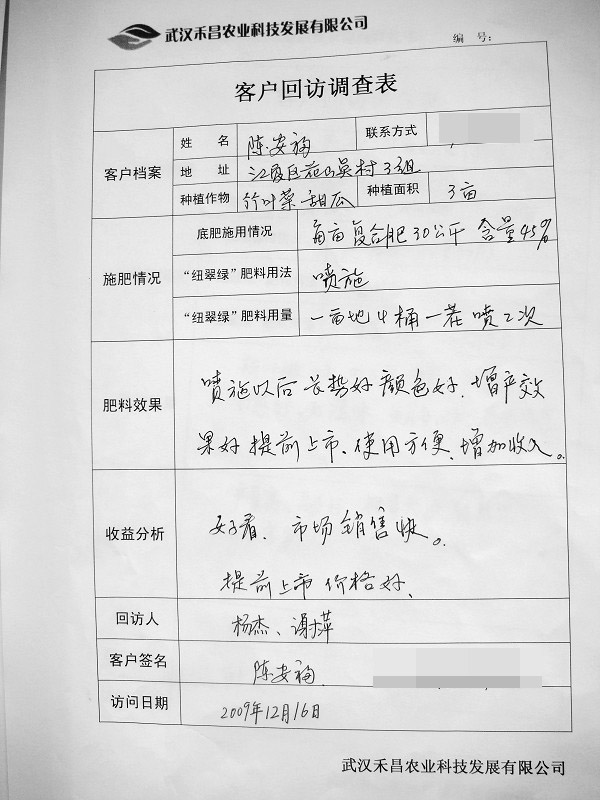 武汉禾昌农业科技发展有限公司
编 号:
客户回访调查表
客户档案
姓 名 陈安福 联系方式
地 址 江夏区范山吴村3组
种植作物 竹叶菜 甜瓜 种植面积 3亩
施肥情况
底肥施用情况 每亩复合肥30公斤 含量45%
“纽翠绿”肥料用法 喷施
“纽翠绿”肥料用量 一亩地4桶一茬 喷2次
肥料效果
喷施以后长势好 颜色好、增产效
果好 提前上市、使用方便、增加收入。
收益分析
好看、市场销售快。
提前上市 价格好、
回访人 杨杰、谢萍
客户签名 陈安福
访问日期 2009年12月16日
武汉禾昌农业科技发展有限公司